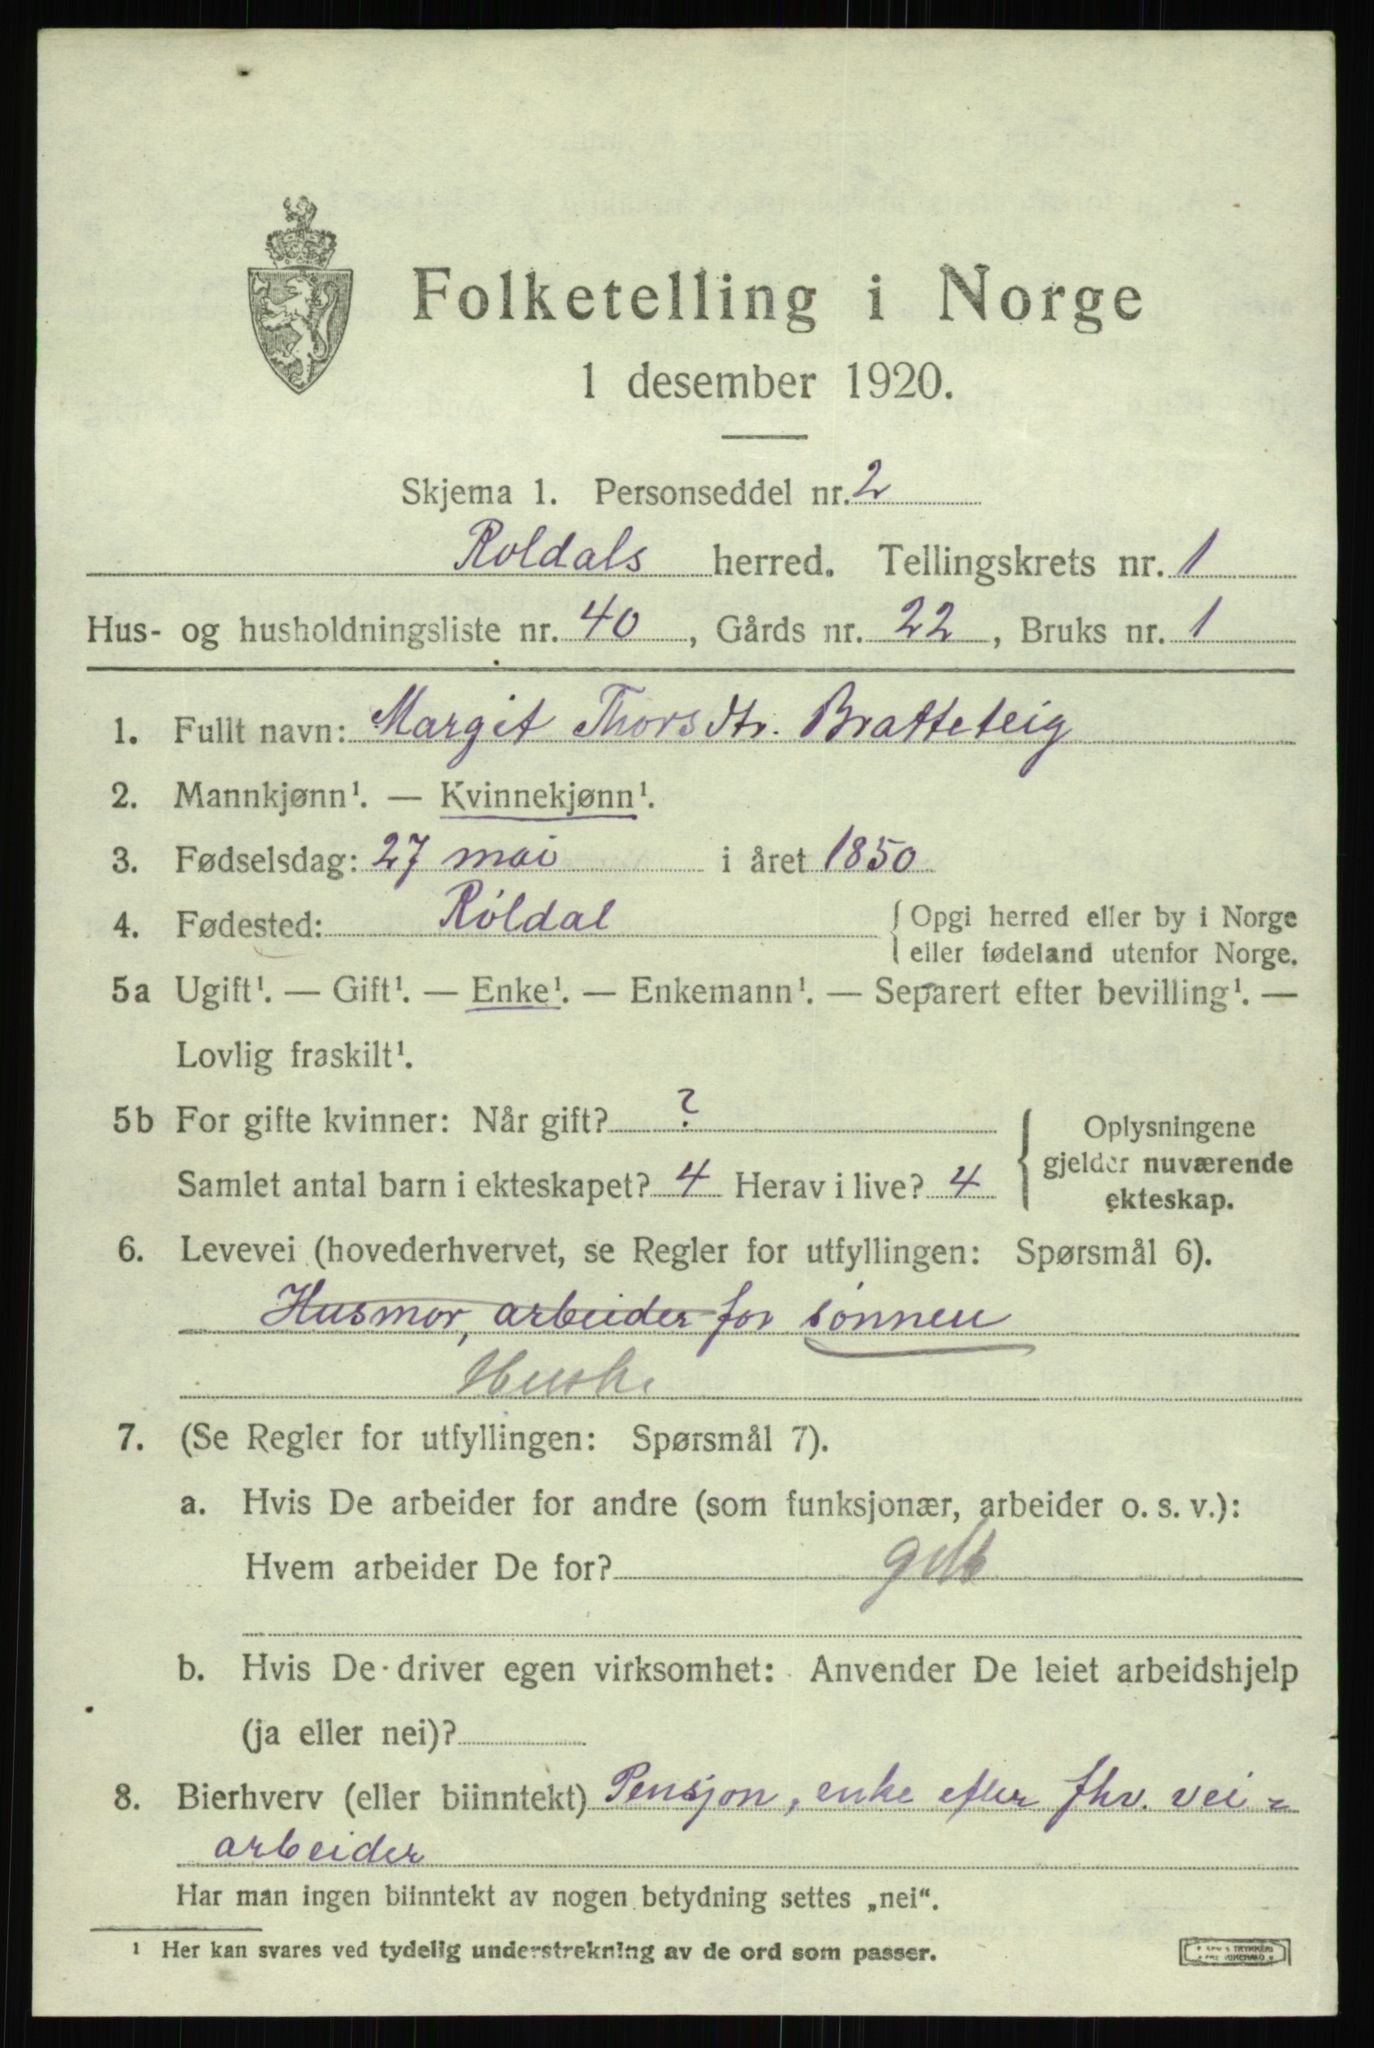 Folketelling i Norge
1 desember 1920.
Skjema 1. Personseddel nr. 2
Roldals herred. Tellingskrets nr. 1
Hus- og husholdningsliste nr. 40, Gårds nr. 22, Bruks nr. 1
1. Fullt navn: Margit Thorsdtr. Bratteteig
2. Mannkjønn¹. — Kvinnekjønn¹.
3. Fødselsdag: 27 mai i året 1850
4. Fødested: Röldal { Opgi herred eller by i Norge
eller fødeland utenfor Norge.
5a Ugift¹. — Gift¹. — Enke¹. — Enkemann¹. — Separert efter bevilling¹. —
Lovlig fraskilt¹.
5b For gifte kvinner: Når gift? ?
Samlet antal barn i ekteskapet? 4 Herav i live? 4
{ Oplysningene
gjelder nuværende
ekteskap.
6. Levevei (hovederhvervet, se Regler for utfyllingen: Spørsmål 6).
Husmor, arbeider for sönnen
7. (Se Regler for utfyllingen: Spørsmål 7).
a. Hvis De arbeider for andre (som funksjonær, arbeider o. s. v.):
Hvem arbeider De for?
b. Hvis De driver egen virksomhet: Anvender De leiet arbeidshjelp
(ja eller nei)?
8. Bierhverv (eller biinntekt) Pensjon, enke efter fhv. vei=
arbeider
Har man ingen biinntekt av nogen betydning settes „nei“.
¹ Her kan svares ved tydelig understrekning av de ord som passer.